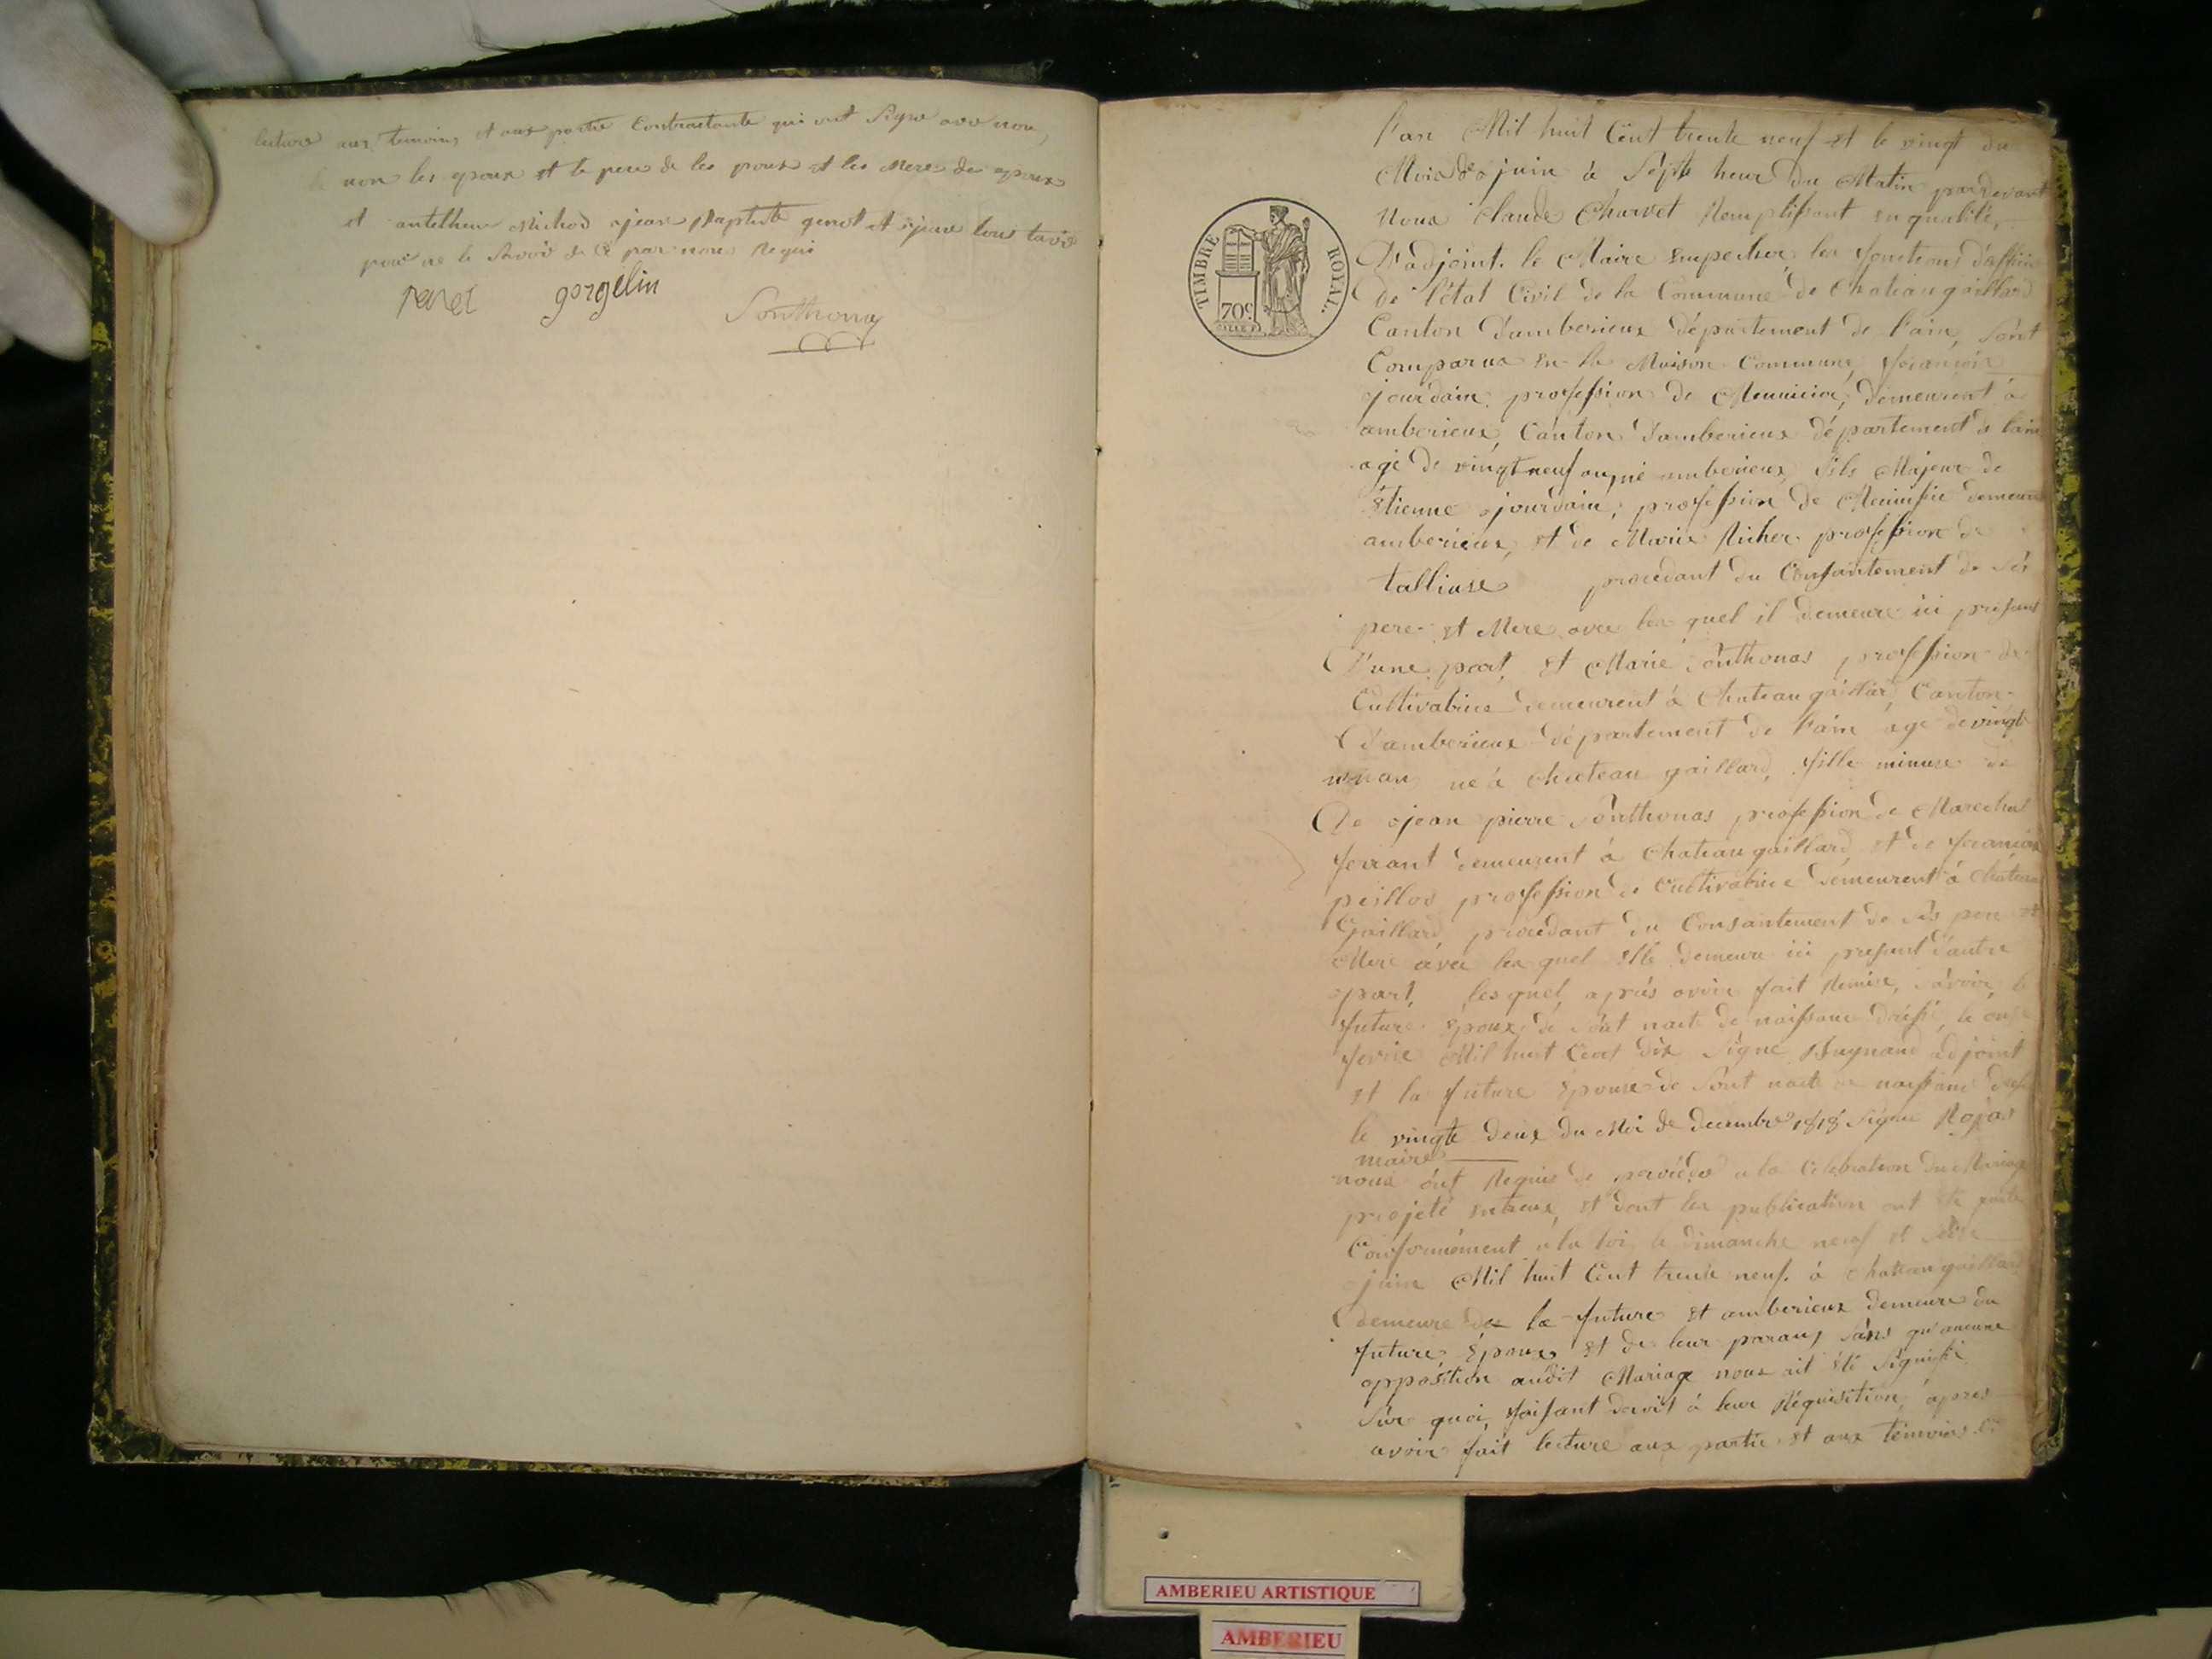 lecture aux temoins et aux partie Contractante qui ont Signe avec nous,
non les epoux et le pere de les poux et les Mere des epoux
et antelheme Michod jean Baptiste genot et
pour ne le Savoir de Ce par nous Requi
perel gorgelin Sonthonas
l'an Mil huit Cent trente neuf et le vingt du
Mois de juin à Sept heur du Matin pardevant
Nous Claude Charvet Remplissant en qualité,
D'adjoint. le Maire empecher les fonctions d'officier
de l'état Civil de la Commune de Chateaugaillard
Canton d'amberieux département de l'ain, Sont
Comparus en la Maison Commune, francois
jourdain profession de Menuisier, demeurent à
amberieux, Canton d'amberieux département de l'ain
agé de vingt neuf an, né amberieux, fils Majeur de
Etienne jourdain, profession de Menuisie demeurent
amberieux, et de Marie Richer profession de
talliuse procedant du Consantement de Ses
pere et Mere avec les quel il demeure ici present
D'une part, et Marie Sonthonas profession de
Cultivatrice demeurent à Chateaugaillard, Canton
d'amberieux département de l'ain agé de vingt
un an né à Chateau gaillard, fille mineure de
De jean pierre Sonthonas profession de Marechal
ferrant demeurent à Chateaugaillard, et de francoise
peillod profession de Cultivatrice demeurent à Chateau
Gaillard, procedant du Consantement de Ses pere et
Mere avec les quel elle demeure ici present d'autre
part, lesquel, après avoir fait Remise, Savoir, le
future Epoux, de Sont nacte de naissance dréssé, le onze
fevrie Mil huit Cent dix Signe Bugnand adjoint
et la future Epouse de Sont nacte de naissance dressé
le vingte deux du Moi de decembre 1818 Signe Rojas
maire
nous ont Requis de procéder a la Celebration du Mariage
projeté entreux, et dont les publication ont été faite
Conformément a la loi, le dimanche neuf et Seize
juin Mil huit Cent trente neuf. à Chateaugaillard
demeure de la future et amberieux demeure du
future Epoux et de leur parans, Sans qu'aucune
opposition audit Mariage nous ait été Signifié
Sur quoi, faisant droit à leur Réquisition, après
avoir fait lecture aux partie et aux temoins
TIMBRE ROYAL.
70c
AMBERIEU ARTISTIQUE
AMBERIEU